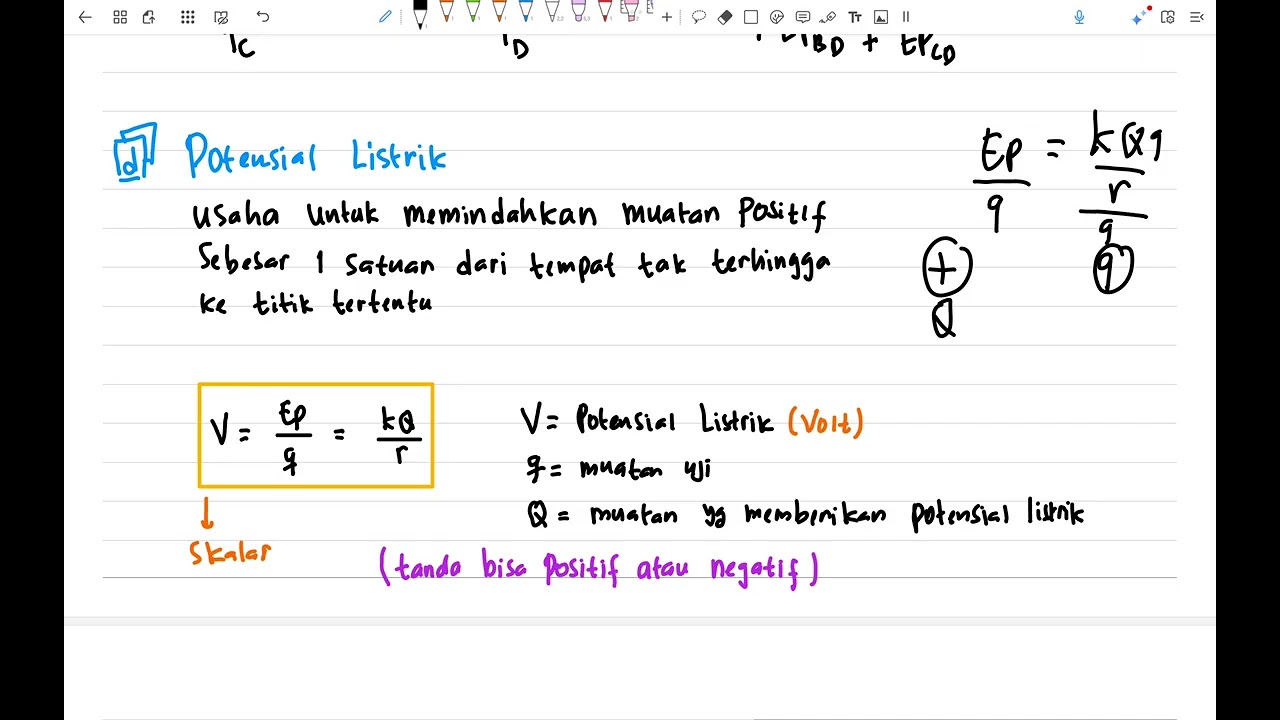 EP_CD
d Potensial Listrik
Ep/q = kQq/r/q
usaha untuk memindahkan muatan positif
sebesar 1 satuan dari tempat tak terhingga
ke titik tertentu
+ q
Q
V = Ep/q = kQ/r
V = Potensial Listrik (Volt)
q = muatan uji
Q = muatan yg memberikan potensial listrik
↓
Skalar
(tanda bisa positif atau negatif)